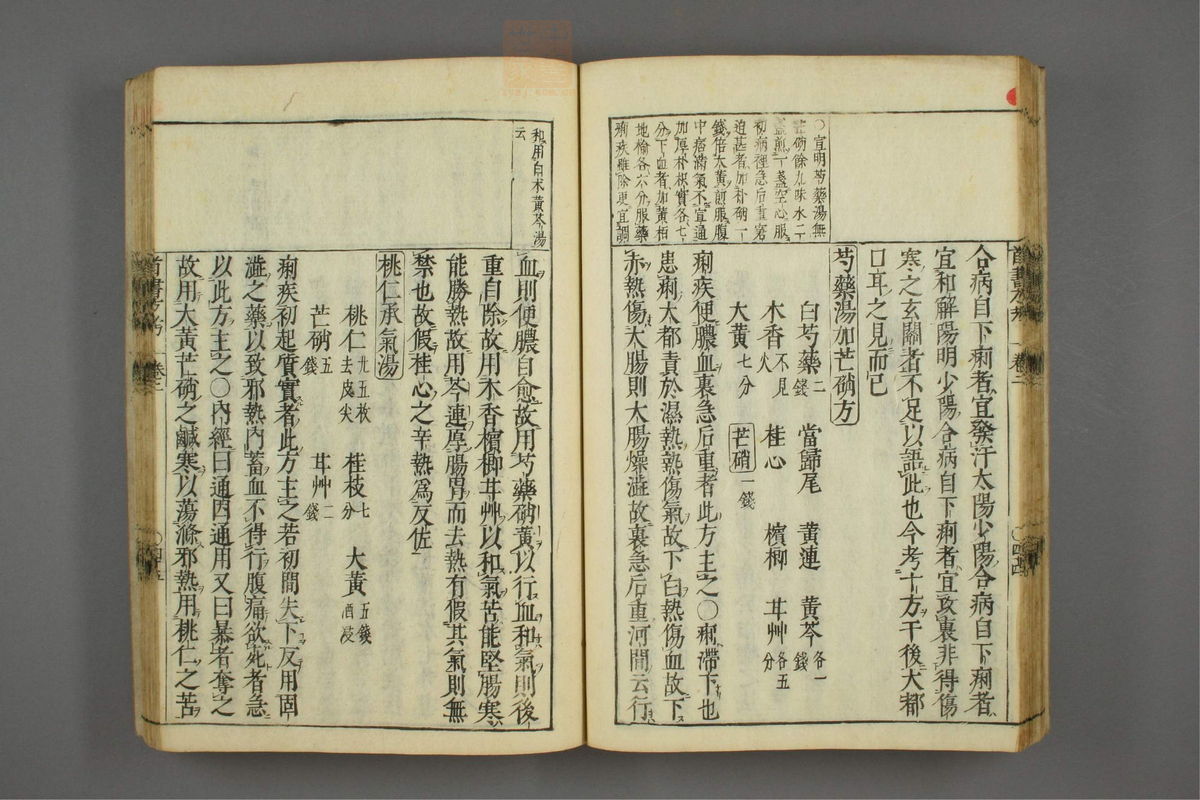 合病自下痢者宜發汗太陽少陽合病自下痢者
宜和解陽明少陽合病自下痢者宜攻裏非得傷
寒之玄關者不足以語此也今考十方于後大都
口耳之見而已
芍藥湯加芒硝方
白芍藥二錢 當歸尾 黃連 黃芩各一錢
木香不見火 桂心 檳榔 甘艸各五分
大黃七分 芒硝一錢
痢疾便膿血裏急后重者此方主之〇痢滯下也
患痢大都責於濕熱熱傷氣故下白熱傷血故下
赤熱傷大腸則大腸燥澁故裏急后重河間云行
〇宣明芍藥湯無
芒硝餘九味水二
盞煎一盞空心服
初病裡急后重窘
迫甚者加朴硝一
錢倍大黃煎服腹
中痞滿氣不宣通
加厚朴枳實各七
分下血者加黃栢
地榆各六分服藥
痢疾雖除更宜調
和用白朮黃芩湯
云
血則便膿自愈故用芍藥硝黃以行血和氣則後
重自除故用木香檳榔甘艸以和氣苦能堅腸寒
能勝熱故用芩連厚腸胃而去熱有假其氣則無
禁也故假桂心之辛熱爲反佐
桃仁承氣湯
桃仁卄五枚去皮尖 桂枝七分 大黃五錢酒浸
芒硝五錢 甘艸二錢
痢疾初起質實者此方主之若初間失下反用固
澁之藥以致邪熱內蓄血不得行腹痛欲死者急
以此方主之〇內經曰通因通用又曰暴者奪之
故用大黃芒硝之鹹寒以蕩滌邪熱用桃仁之苦
卷三
〇四四
卷三
〇四五